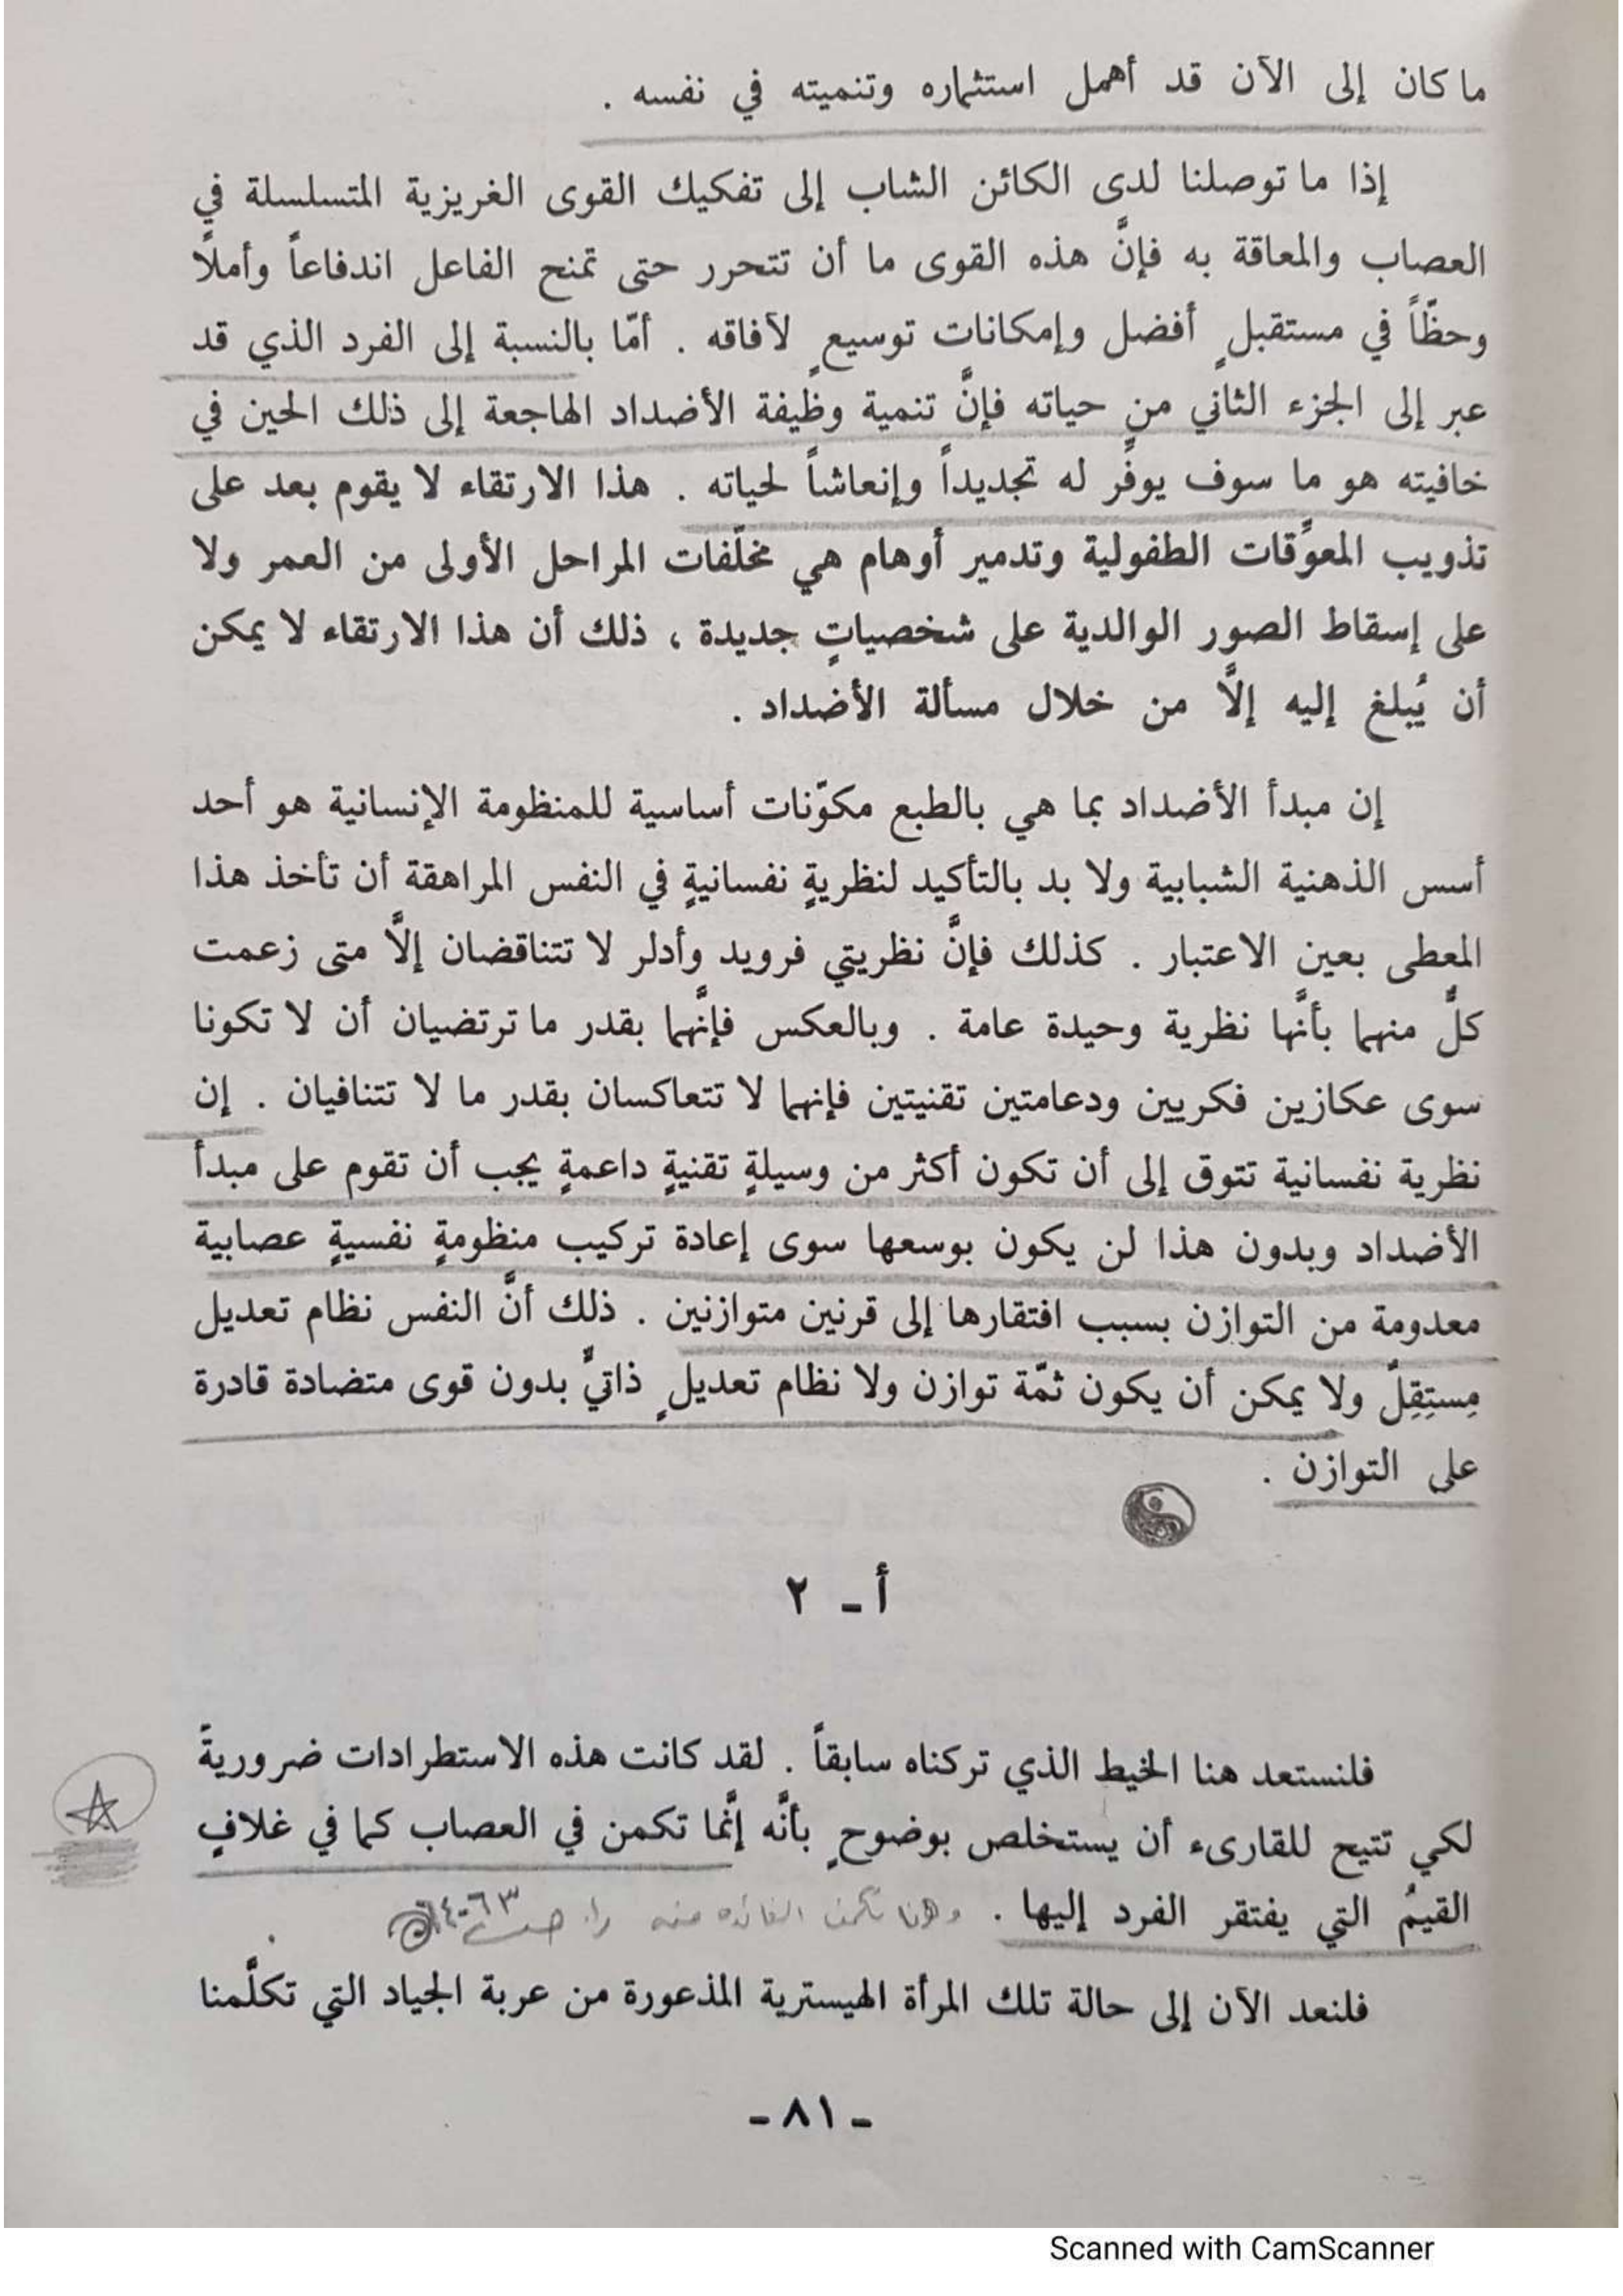 ما كان إلى الآن قد أهمل استثماره وتنميته في نفسه .
إذا ما توصلنا لدى الكائن الشاب إلى تفكيك القوى الغريزية المتسلسلة في
العصاب والمعاقة به فإنَّ هذه القوى ما أن تتحرر حتى تمنح الفاعل اندفاعاً وأملًا
وحظّاً في مستقبلٍ أفضل وإمكانات توسيعٍ لآفاقه . أمّا بالنسبة إلى الفرد الذي قد
عبر إلى الجزء الثاني من حياته فإنَّ تنمية وظيفة الأضداد الهاجعة إلى ذلك الحين في
خافيته هو ما سوف يوفِّر له تجديداً وإنعاشاً لحياته . هذا الارتقاء لا يقوم بعد على
تذويب المعوِّقات الطفولية وتدمير أوهام هي مخلّفات المراحل الأولى من العمر ولا
على إسقاط الصور الوالدية على شخصياتٍ جديدة ، ذلك أن هذا الارتقاء لا يمكن
أن يُبلغ إليه إلَّا من خلال مسألة الأضداد .
إن مبدأ الأضداد بما هي بالطبع مكوّنات أساسية للمنظومة الإنسانية هو أحد
أسس الذهنية الشبابية ولا بد بالتأكيد لنظريةٍ نفسانيةٍ في النفس المراهقة أن تأخذ هذا
المعطى بعين الاعتبار . كذلك فإنَّ نظريتي فرويد وأدلر لا تتناقضان إلَّا متى زعمت
كلٌّ منهما بأنَّها نظرية وحيدة عامة . وبالعكس فإنَّهما بقدر ما ترتضيان أن لا تكونا
سوى عكازين فكريين ودعامتين تقنيتين فإنهما لا تتعاكسان بقدر ما لا تتنافيان . إن
نظرية نفسانية تتوق إلى أن تكون أكثر من وسيلةٍ تقنيةٍ داعمةٍ يجب أن تقوم على مبدأ
الأضداد وبدون هذا لن يكون بوسعها سوى إعادة تركيب منظومةٍ نفسيةٍ عصابية
معدومة من التوازن بسبب افتقارها إلى قرنين متوازنين . ذلك أنَّ النفس نظام تعديل
مستقِلّ ولا يمكن أن يكون ثمّة توازن ولا نظام تعديلٍ ذاتيٌّ بدون قوى متضادة قادرة
على التوازن .
أ ـ ٢
فلنستعد هنا الخيط الذي تركناه سابقاً . لقد كانت هذه الاستطرادات ضروريةً
لكي تتيح للقارىء أن يستخلص بوضوحٍ بأنَّه إنَّما تكمن في العصاب كما في غلافٍ
القيمُ التي يفتقر الفرد إليها . وهنا تكمن الفائده منه
فلنعد الآن إلى حالة تلك المرأة الهيسترية المذعورة من عربة الجياد التي تكلَّمنا
ـ ٨١ ـ
Scanned with CamScanner